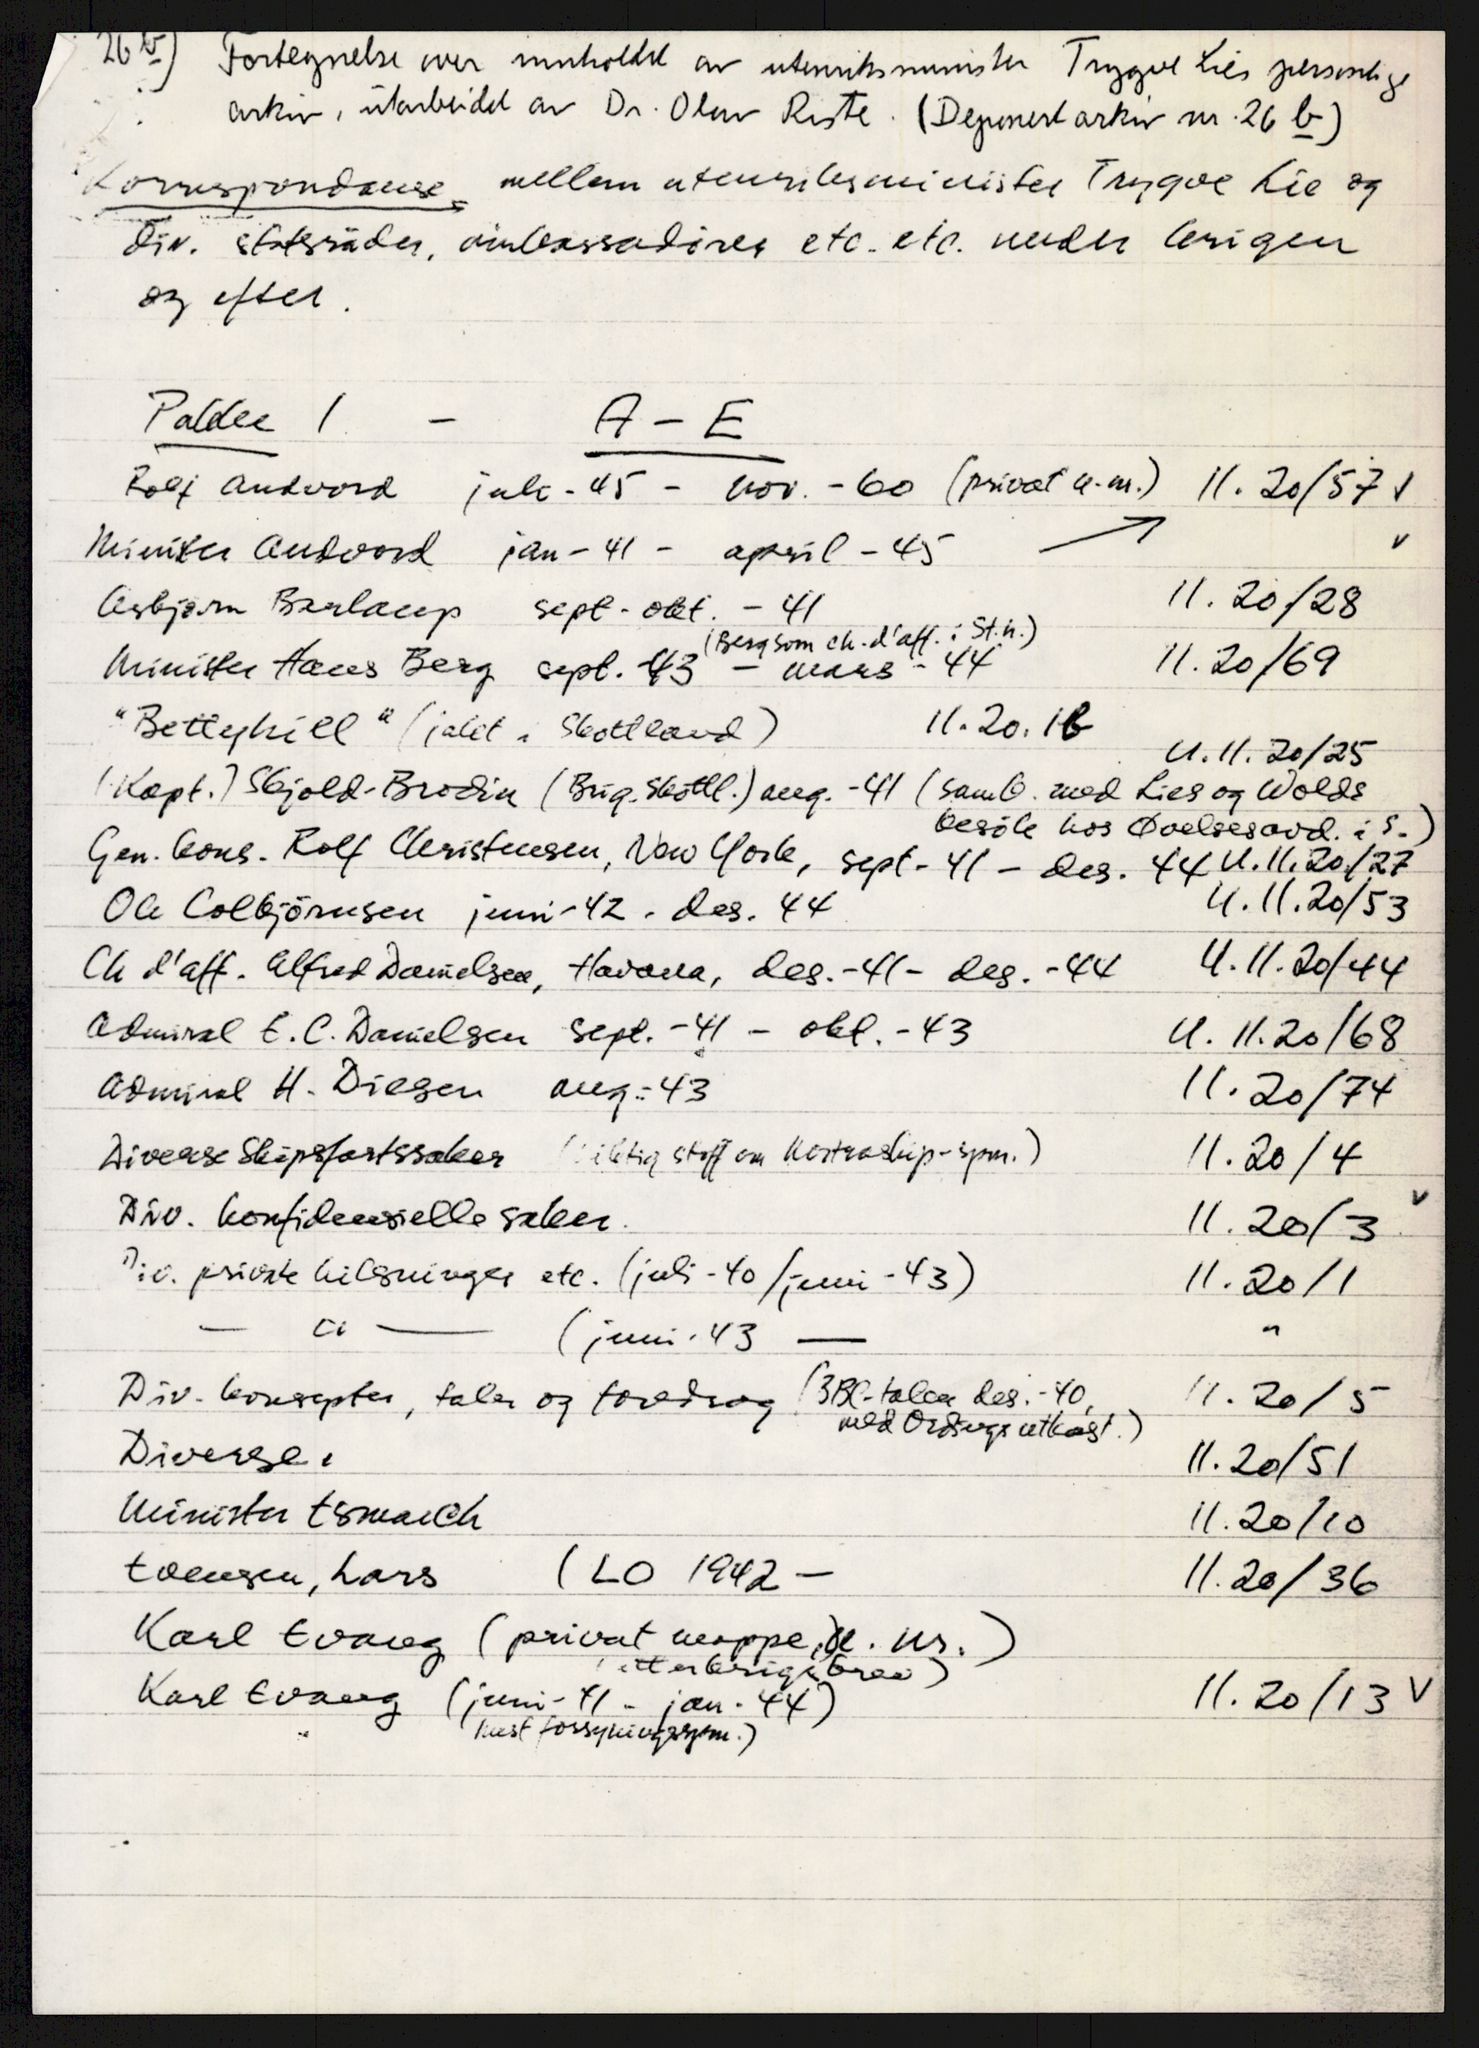 26 b) Fortegnelse over innholdet av utenriksminister Trygve Lies personlige
arkiv, utarbeidet av Dr. Olav Riste. (Deponert arkiv nr. 26 b)
Korrespondanse mellem utenriksminister Trygve Lie og
div. statsråder, ambassadører etc. etc. under krigen
og efter.
Pakke 1 - A - E
Rolf Andvord juli - 45 - nov. - 60 (privat u. nr.) 11. 20/57 v
Minister Andvord jan - 41 - april - 45 v
Asbjørn Barlaup sept - okt. - 41 11. 20/28
(Berg som ch. d'aff. i St.h.)
Minister Hans Berg sept. - 43 - mars - 44 11. 20/69
"Bettyhill" (jakt i Skottland) 11. 20. 1b
U. 11. 20/25
(Kapt.) Skjold-Brodin (Brig. Skottl.) aug. - 41 (samb. med Lies og Wolds
besök hos Øvelsesavd. i S.)
Gen. kons. Rolf Christensen, New York, sept - 41 - des. 44 U. 11. 20/27
Ole Colbjörnsen juni - 42 - des. 44 U. 11. 20/53
Ch d'aff. Alfred Danielsen, Havana, des. - 41 - des. - 44 U. 11. 20/44
Admiral E. C. Danielsen sept. - 41 - okt. - 43 U. 11. 20/68
Admiral H. Diesen aug. - 43 11. 20/74
Diverse Skipsfartssaker (viktig stoff om Nortraship-spm.) 11. 20/4
Div. konfidensielle saker. 11. 20/3 v
Div. private hilsninger etc. (juli - 40 / juni - 43) 11. 20/1
— " — (juni - 43 — "
Div. konsepter, taler og foredrag (BBC-talen des. - 40, 11. 20/5
med Ordings utkast.)
Diverse. 11. 20/51
Minister Esmarch 11. 20/10
Evensen, Lars (LO 1942 - 11. 20/36
Karl Evang (privat mappe, u. nr.)
(etterkrigsbrev)
Karl Evang (juni - 41 - jan - 44) 11. 20/13 v
mest forsyningsspm.)